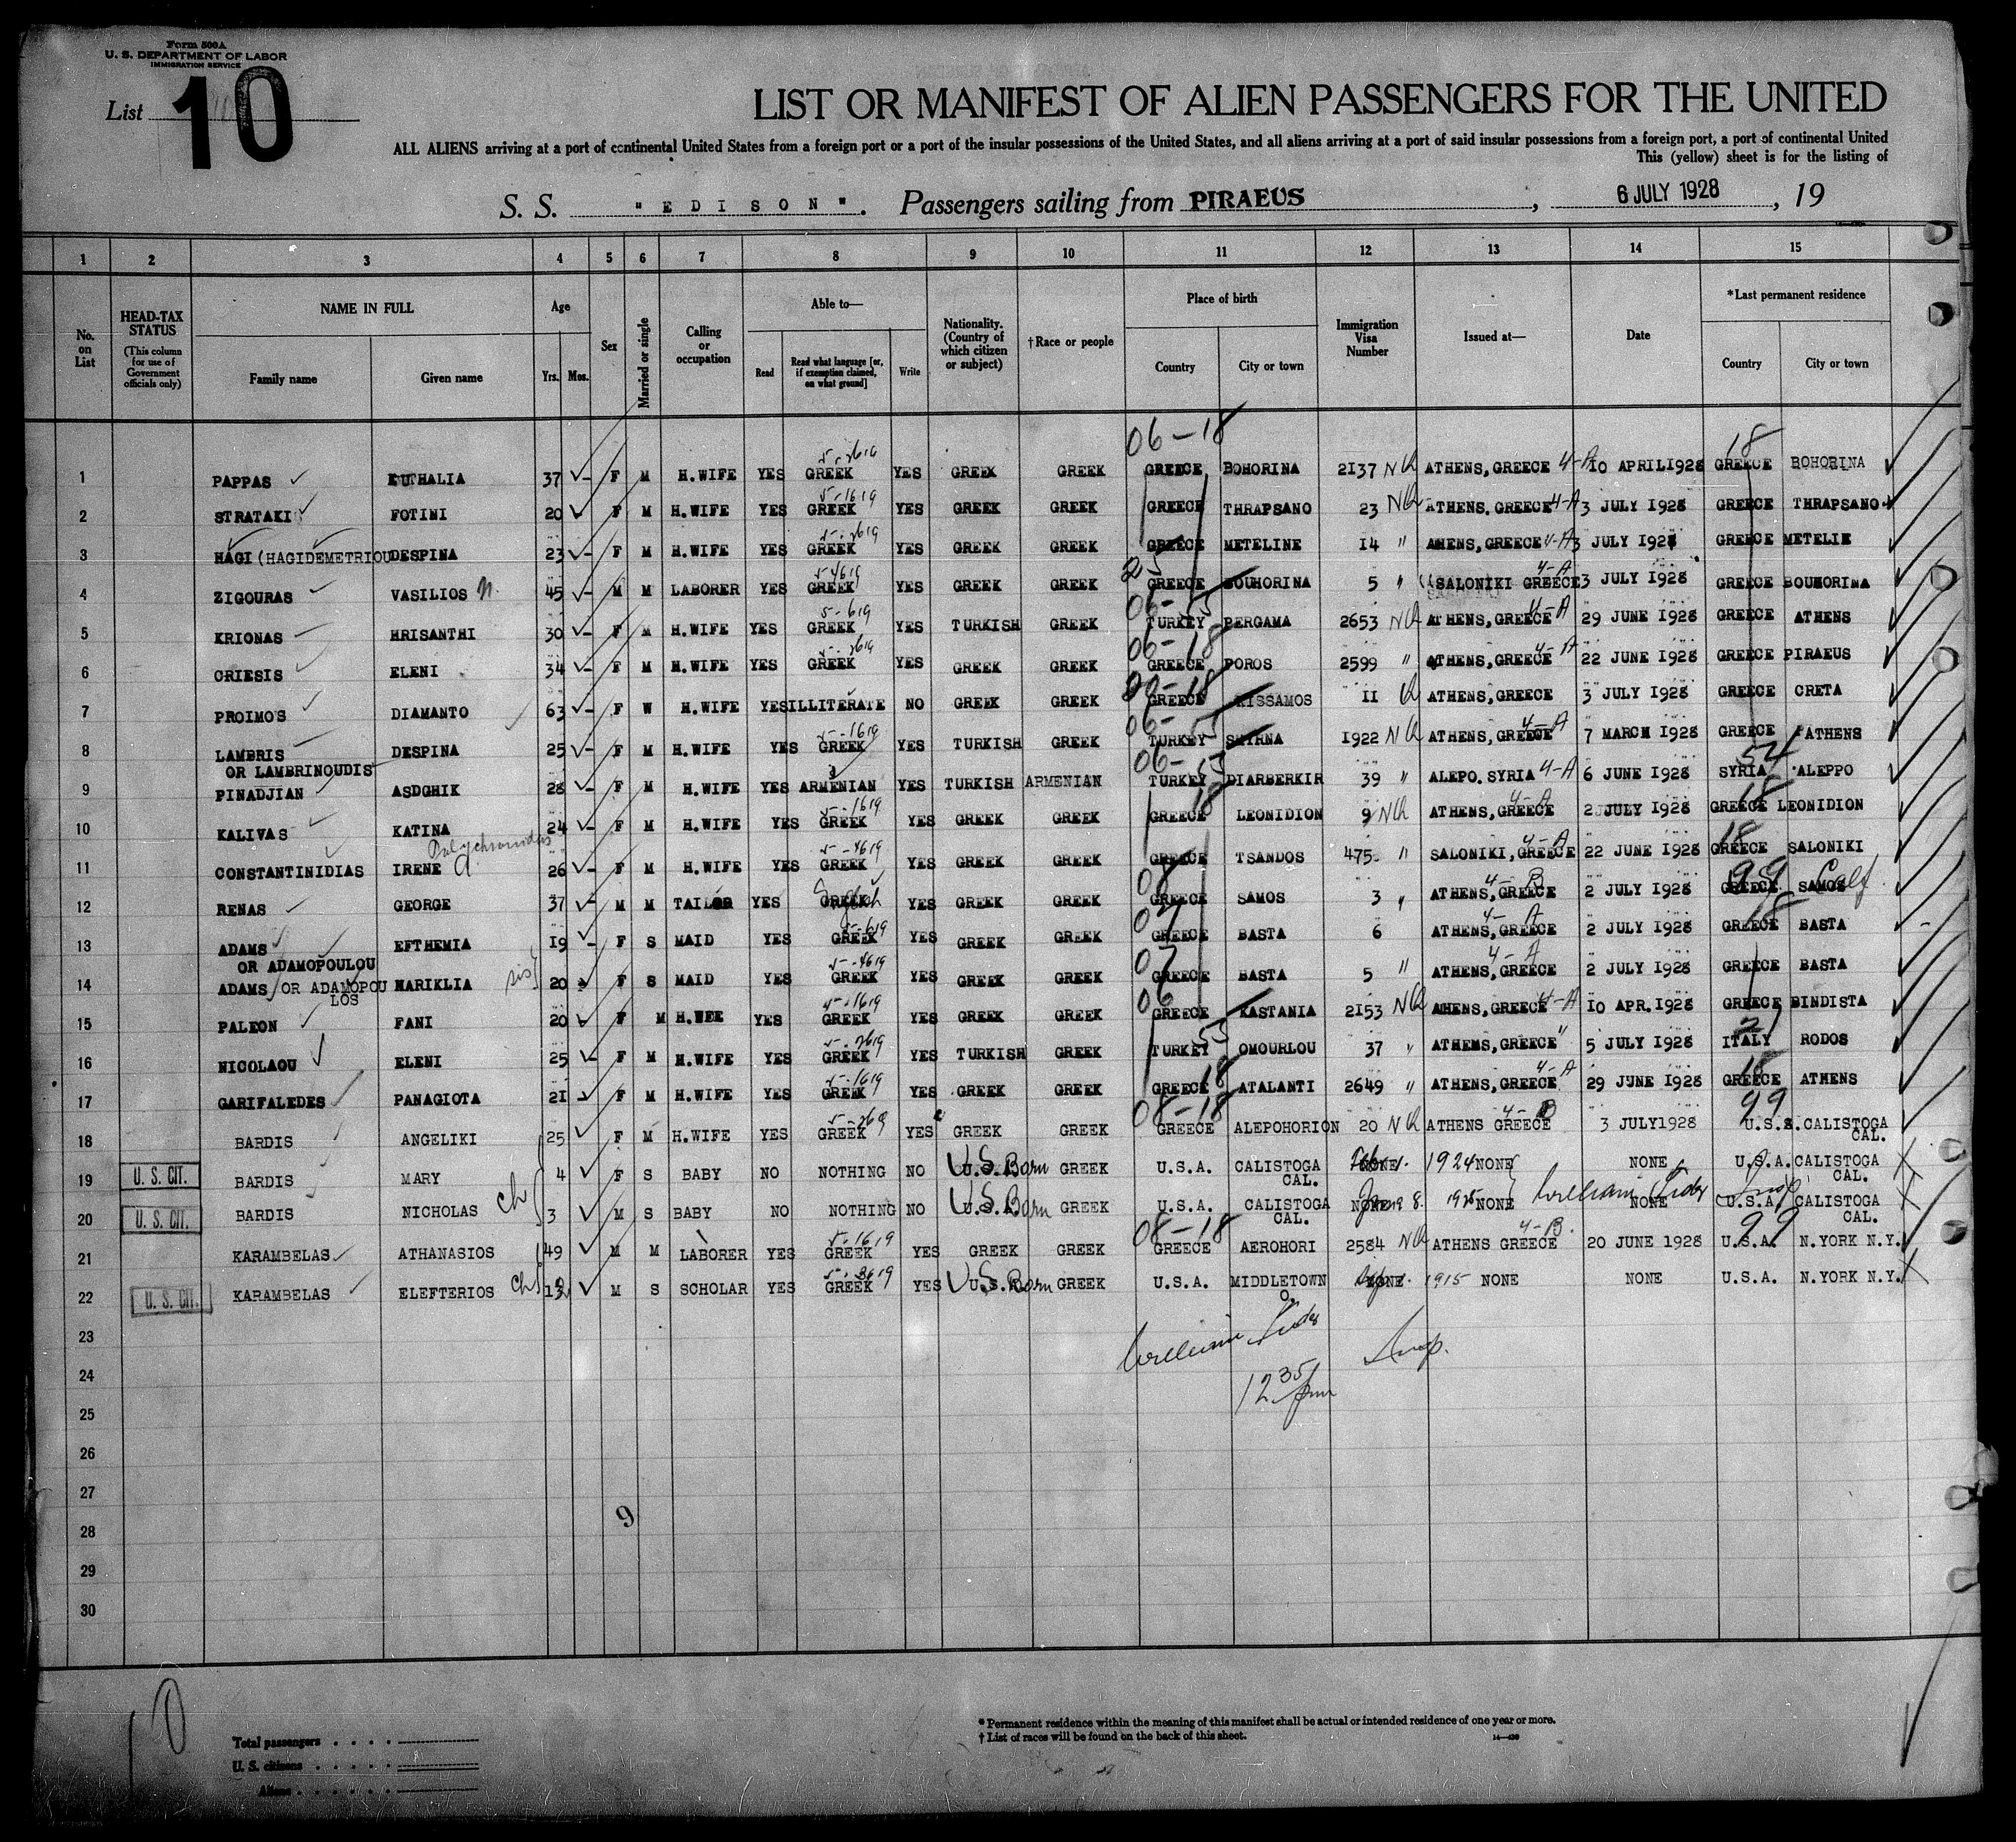 Form 500A
U. S. DEPARTMENT OF LABOR
IMMIGRATION SERVICE
List 10
LIST OR MANIFEST OF ALIEN PASSENGERS FOR THE UNITED
ALL ALIENS arriving at a port of continental United States from a foreign port or a port of the insular possessions of the United States, and all aliens arriving at a port of said insular possessions from a foreign port, a port of continental United
This (yellow) sheet is for the listing of
S. S. "EDISON". Passengers sailing from PIRAEUS, 6 JULY 1928, 19
1 2 3 4 5 6 7 8 9 10 11 12 13 14 15
No. on List
HEAD-TAX STATUS (This column for use of Government officials only)
NAME IN FULL
Family name Given name
Age
Yrs. Mos.
Sex
Married or single
Calling or occupation
Able to—
Read Read what language [or, if exemption claimed, on what ground] Write
Nationality. (Country of which citizen or subject)
†Race or people
Place of birth
Country City or town
Immigration Visa Number
Issued at—
Date
*Last permanent residence
Country City or town
06-18 18
1 PAPPAS EUTHALIA 37 F M H.WIFE YES GREEK YES GREEK GREEK GREECE BOHORINA 2137 ATHENS, GREECE 4-A 10 APRIL 1928 GREECE BOHORINA
2 STRATAKI FOTINI 20 F M H.WIFE YES GREEK YES GREEK GREEK GREECE THRAPSANO 23 ATHENS. GREECE 4-A 3 JULY 1928 GREECE THRAPSANO
3 HAGI (HAGIDEMETRIOU DESPINA 23 F M H.WIFE YES GREEK YES GREEK GREEK GREECE METELINE 14 " AHENS, GREECE 4-A 3 JULY 1928 GREECE METELIE
4 ZIGOURAS VASILIOS 45 M M LABORER YES GREEK YES GREEK GREEK GREECE BOUHORINA 5 " SALONIKI GREECE 4-A 3 JULY 1928 GREECE BOUHORINA
5 KRIONAS HRISANTHI 30 F M H.WIFE YES GREEK YES TURKISH GREEK TURKEY PERGAMA 2653 ATHENS, GREECE 4-A 29 JUNE 1928 GREECE ATHENS
6 CRIESIS ELENI 34 F M H.WIFE YES GREEK YES GREEK GREEK GREECE POROS 2599 " ATHENS, GREECE 4-A 22 JUNE 1928 GREECE PIRAEUS
7 PROIMOS DIAMANTO 63 F W H.WIFE YES ILLITERATE NO GREEK GREEK GREECE KISSAMOS 11 ATHENS, GREECE 3 JULY 1928 GREECE CRETA
8 LAMBRIS DESPINA 25 F M H.WIFE YES GREEK YES TURKISH GREEK TURKEY SMYRNA 1922 ATHENS, GREECE 4-A 7 MARCH 1928 GREECE ATHENS
OR LAMBRINOUDIS
9 PINADJIAN ASDGHIK 28 F M H.WIFE YES ARMENIAN YES TURKISH ARMENIAN TURKEY DIARBERKIR 39 " ALEPO. SYRIA 4-A 6 JUNE 1928 SYRIA ALEPPO
10 KALIVAS KATINA 24 F M H.WIFE YES GREEK YES GREEK GREEK GREECE LEONIDION 9 ATHENS, GREECE 4-A 2 JULY 1928 GREECE LEONIDION
11 CONSTANTINIDIAS IRENE 26 F M H.WIFE YES GREEK YES GREEK GREEK GREECE TSANDOS 475 " SALONIKI, GREECE 4-A 22 JUNE 1928 GREECE SALONIKI
12 RENAS GEORGE 37 M M TAILOR YES GREEK English YES GREEK GREEK GREECE SAMOS 3 " ATHENS, GREECE 4-B 2 JULY 1928 GREECE 99 SAMOS Calf.
13 ADAMS EFTHEMIA 19 F S MAID YES GREEK YES GREEK GREEK GREECE BASTA 6 ATHENS, GREECE 4-A 2 JULY 1928 GREECE BASTA
OR ADAMOPOULOU
14 ADAMS/OR ADAMOPOU LOS MARIKLIA sis 20 F S MAID YES GREEK YES GREEK GREEK GREECE BASTA 5 " ATHENS, GREECE 4-A 2 JULY 1928 GREECE BASTA
15 PALEON FANI 20 F M H.WEE YES GREEK YES GREEK GREEK GREECE KASTANIA 2153 AHENS, GREECE 4-A 10 APR. 1928 GREECE BINDISTA
16 NICOLAOU ELENI 25 F M H.WIFE YES GREEK YES TURKISH GREEK TURKEY OMOURLOU 37 " ATHENS, GREECE " 5 JULY 1928 ITALY RODOS
17 GARIFALEDES PANAGIOTA 21 F M H.WIFE YES GREEK YES GREEK GREEK GREECE ATALANTI 2649 " ATHENS, GREECE 4-A 29 JUNE 1928 GREECE ATHENS
18 BARDIS ANGELIKI 25 F M H.WIFE YES GREEK YES GREEK GREEK 08-18 GREECE ALEPOHORION 20 ATHENS GREECE 4-B 3 JULY 1928 99 U.S.A. CALISTOGA CAL.
19 U. S. CIT. BARDIS MARY 4 F S BABY NO NOTHING NO U.S. Born GREEK U.S.A. CALISTOGA CAL. NONE 1924 NONE NONE U.S.A. CALISTOGA CAL.
20 U. S. CIT. BARDIS NICHOLAS ch 3 M S BABY NO NOTHING NO U.S. Born GREEK U.S.A. CALISTOGA CAL. NONE 1925 NONE NONE U.S.A. CALISTOGA CAL.
21 KARAMBELAS ATHANASIOS 49 M M LABORER YES GREEK YES GREEK GREEK 08-18 GREECE AEROHORI 2584 ATHENS GREECE 4-B. 20 JUNE 1928 99 U.S.A. N.YORK N.Y.
22 U. S. CIT. KARAMBELAS ELEFTERIOS ch M S SCHOLAR YES GREEK YES U.S. Born GREEK U.S.A. MIDDLETOWN O. NONE 1915 NONE NONE U.S.A. N.YORK N.Y.
23
Insp.
24
12 35 pm
25
26
27
28
9
29
30
Total passengers
U. S. citizens
Aliens
* Permanent residence within the meaning of this manifest shall be actual or intended residence of one year or more.
† List of races will be found on the back of this sheet.